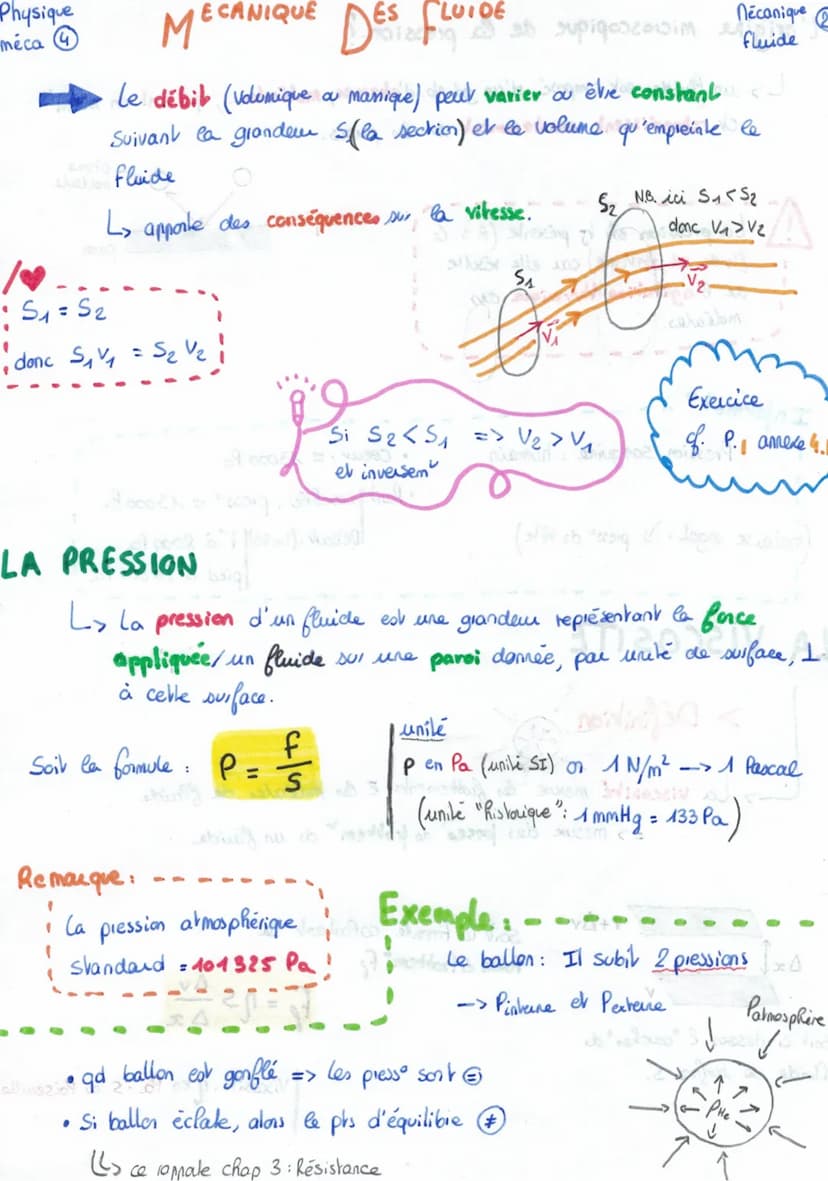 Physique
méca ④
MECANIQUE DES FLUIDE
Mécanique
fluide
Le débit (volumique ou massique) peut varier ou être constant
suivant la grandeur S (la section) et le volume qu'emprinte le
fluide
↳ apporte des conséquences sur la vitesse.
S2
NB. ici S1 < S2
donc V1 > V2
S1
V1
V2
/♥
S1 = S2
donc S1 V1 = S2 V2
Si S2 < S1 => V2 > V1
et inversemt
Exercice
cf. P.1 annexe 4.
LA PRESSION
↳ La pression d'un fluide est une grandeur représentant la force
appliquée / un fluide sur une paroi donnée, par unité de surface, ⊥
à cette surface.
Soit la formule : P = f/S
unité
P en Pa (unité SI) or 1 N/m² --> 1 Pascal
(unité "historique" : 1 mmHg = 133 Pa)
Remarque :
La pression atmosphérique
standard = 101 325 Pa
Exemple :
Le ballon : Il subit 2 pressions
-> Pinterne et Pexterne
Patmosphère
PHe
• qd ballon est gonflé => les press° sont ⊜
• Si ballon éclate, alors le pts d'équilibre ≠
↳ ce rappale chap 3 : Résistance